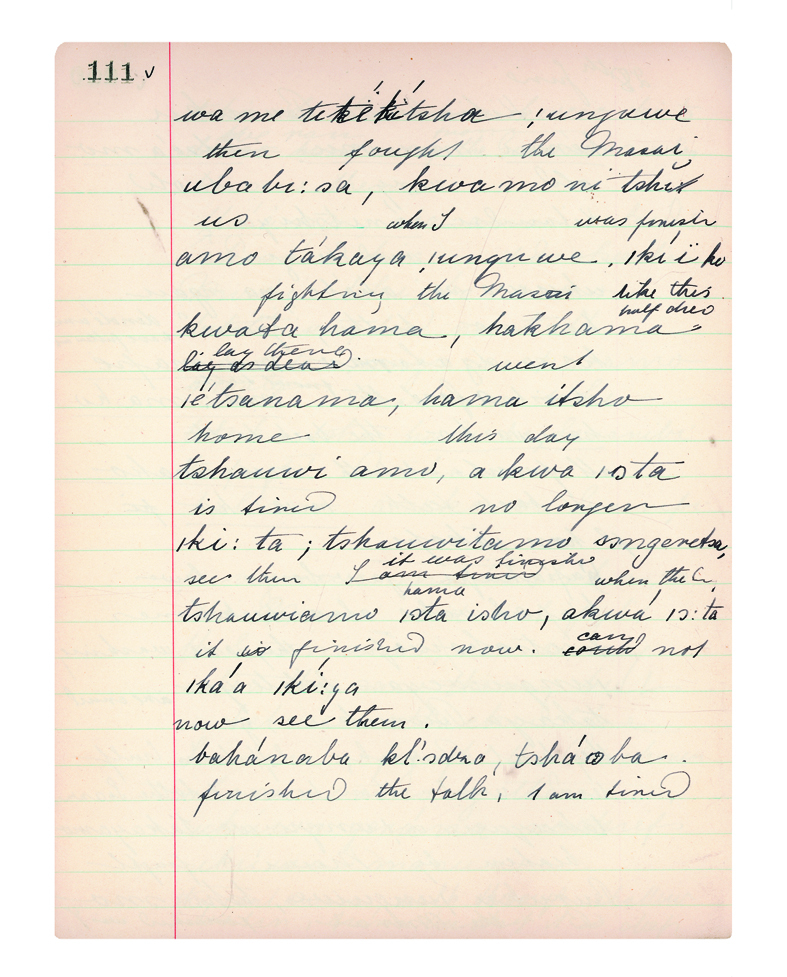 111 v
wa me tekékitsha ; !unguwe
then fought the Masai
ubabi:sa, kwamo ni
us when I was finish
amo tákaya !unguwe, iki
fighting the Masai like this
half died
kwata hama, hakhama =
lay there
lay as dead went
iétsanama, hama itsho
home this day
tshauwi amo, a kwa ista
is tired no longer
iki: ta ; tshauwitamo
see then I am tired
it was finished
when the
hama
tshauwiamo ista isho, akwá is:ta
it is finished now. could not
can
iká'a ikí:ya
now see them.
bahánaba, tsháoba.
finished the talk, I am tired